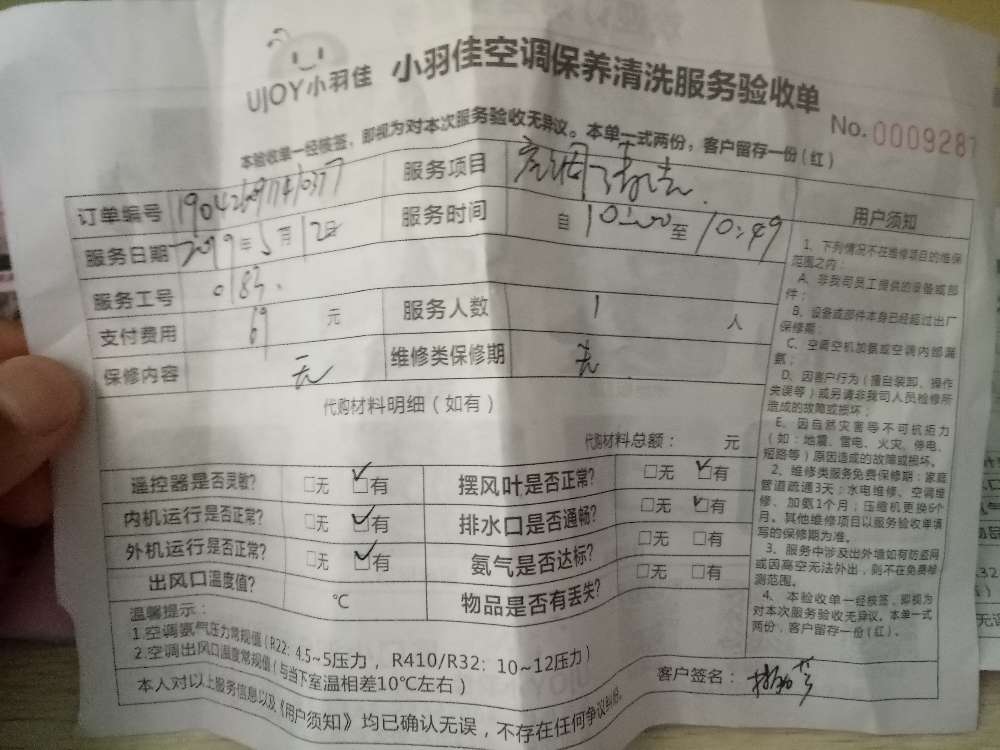 UJOY小羽佳 小羽佳空调保养清洗服务验收单
No.0009281
本验收单一经核签，即视为对本次服务验收无异议。本单一式两份，客户留存一份(红)
订单编号 服务项目
服务日期 2019年5月12日 服务时间 自 10:00 至 10:49
服务工号 0183.
支付费用 69 元 服务人数 1 人
保修内容 无 维修类保修期 无
代购材料明细（如有）
代购材料总额： 元
遥控器是否灵敏? □无 ☑有 摆风叶是否正常? □无 ☑有
内机运行是否正常? □无 ☑有 排水口是否通畅? □无 ☑有
外机运行是否正常? □无 ☑有 氨气是否达标? □无 □有
出风口温度值? ℃ 物品是否有丢失? □无 □有
温馨提示：
1.空调氨气压力常规值（R22: 4.5~5压力，R410/R32: 10~12压力）
2.空调出风口温度常规值（与当下室温相差10℃左右）
客户签名：
本人对以上服务信息以及《用户须知》均已确认无误，不存在任何争议纠纷。
用户须知
1、下列情况不在维修项目的维保
范围之内：
A、非我司员工提供的设备或部
件；
B、设备或部件本身已经超过出厂
保修期；
C、空调空机加氨或空调内部漏
氨；
D、因客户行为（擅自装卸、操作
失误等）或另请非我司人员检修所
造成的故障或损坏；
E、因自然灾害等不可抗拒力
（如：地震、雷电、火灾、停电、
短路等）原因造成的故障或损坏。
2、维修类服务免费保修期：家庭
管道疏通3天；水电维修、空调维
修、加氨1个月；压缩机更换6个
月。其他维修项目以服务验收单填
写的保修期为准。
3、服务中涉及出外墙如有防盗网
或因高空无法外出，则不在免费检
测范围。
4、本验收单一经核签，即视为
对本次服务验收无异议。本单一式
两份，客户留存一份（红）。